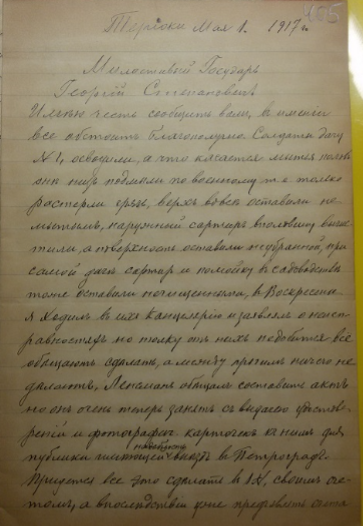 405
Териоки Мая 1. 1917 г.
Милостивый Государь
Георгій Степановичъ
Имѣю честь сообщить вамъ, въ имѣніи
все обстоитъ благополучно. Солдаты дачу
№ 1, освободили, а что касается мытья половъ
они ихъ подмыли по военному т. е. только
растерли грязь, верхъ вовсе оставили не-
мытымъ, наружный сартиръ вполовину
а поверхность оставили неубранной, при
самой дачѣ сартиръ и помойку въ садоводствѣ
тоже оставили неочищенными, въ Воскресенье
я ходилъ въ ихъ канцелярію и заявлялъ о неис-
правностяхъ но толку отъ нихъ всѣ
обѣщаютъ сдѣлать, а между прочимъ ничего не
дѣлаютъ, Ленсманъ обѣщалъ составить актъ
но онъ очень теперь занятъ съ выдачею удостове-
реній и фотографич. карточекъ для
публики имѣющей выѣздъ въ Петроградъ.
Придется все это сдѣлать въ 1 №, своимъ сче-
томъ, а впослѣдствіи уже предъявить счетъ